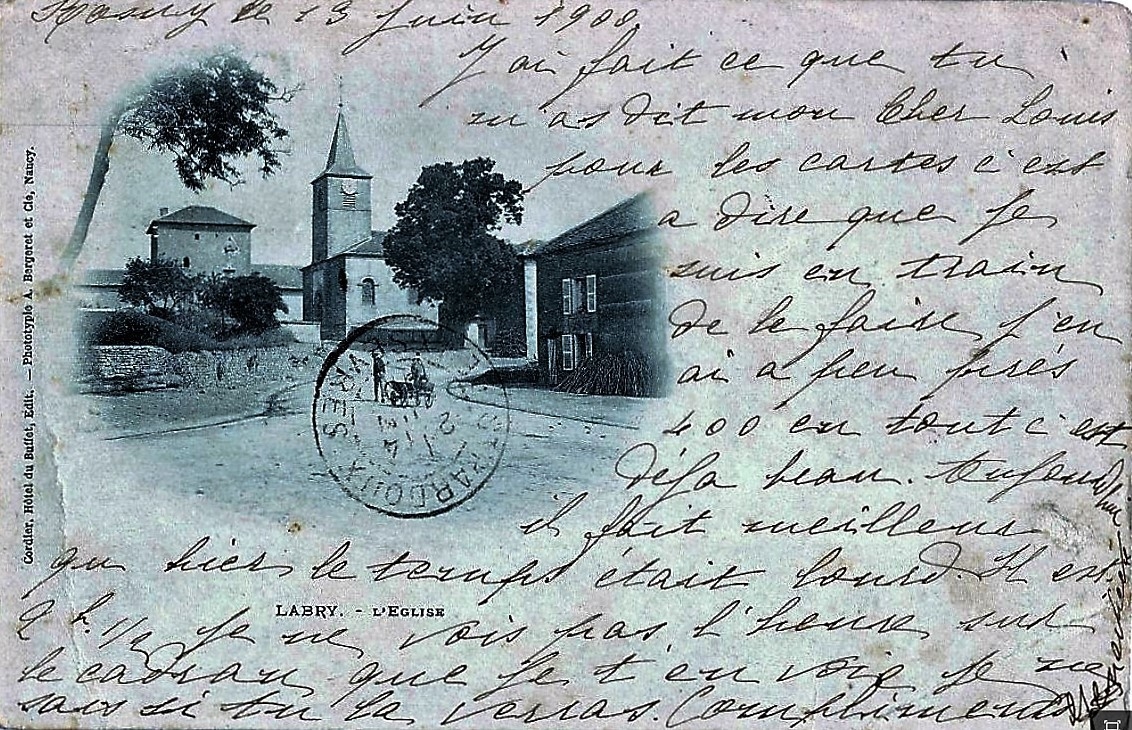 Rosny le 13 Juin 1900
J'ai fait ce que tu
m'as dit mon Cher Louis
pour les cartes c'est
a dire que je
suis en train
de le faire j'en
ai a peu près
400 en tout c'est
déja beau. Aujourd'hui
il fait meilleur
qu hier le temps était lourd. Il est
2 h. 1/2 Je ne vois pas l'heure sur
le cadran que je t'envoie je ne
sais si tu la verras. Compliments
LABRY. - L'EGLISE
Cordier, Hôtel du Buffet, Edit. — Phototypie A. Bergeret et Cie, Nancy.